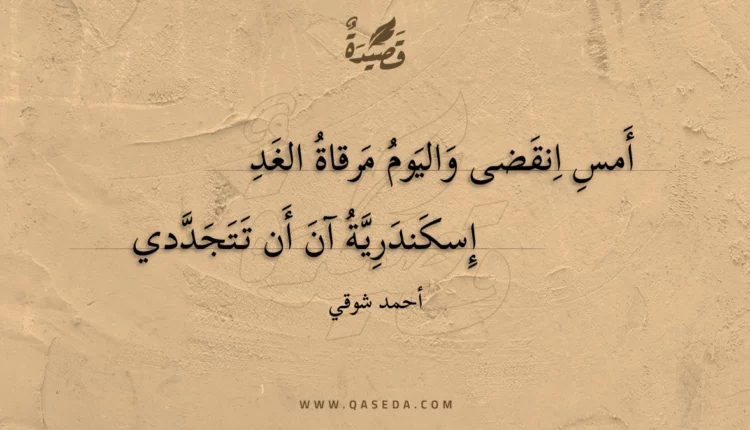 قَصِيْدَةٌ
أَمسِ اِنقَضى وَاليَومُ مَرقاةُ الغَدِ
إِسكَندَرِيَّةُ آنَ أَن تَتَجَدَّدي
أحمد شوقي
WWW.QASEDA.COM